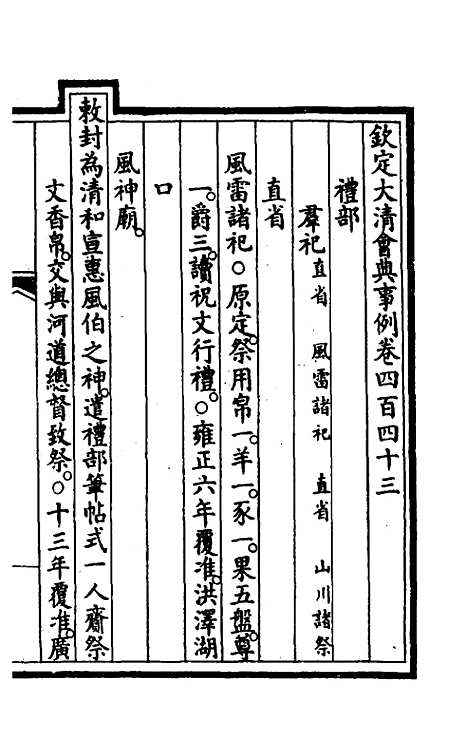 欽定大清會典事例卷四百四十三
禮部
羣祀直省 風雷諸祀 直省 山川諸祭
直省
風雷諸祀○原定祭用帛一羊一豕一果五盤尊
一爵三讀祝文行禮○雍正六年覆准洪澤湖
口
風神廟
敕封為清和宣惠風伯之神遣禮部筆帖式一人齎祭
文香帛交與河道總督致祭○十三年覆准廣